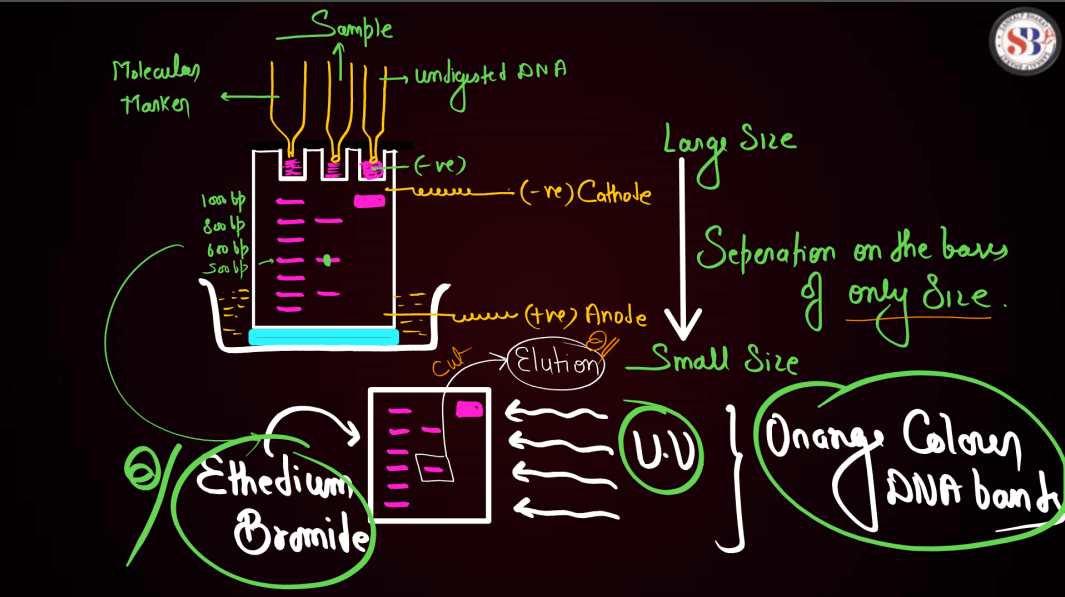 Sample
Molecular
Marker
undigested DNA
(-ve)
(-ve) Cathode
1000 bp
800 bp
600 bp
500 bp
(+ve) Anode
Large Size
Seperation on the bases
of only Size.
Small Size
cut
Elution
Ethedium
Bromide
U.V
Orange Colour
DNA bands
SB